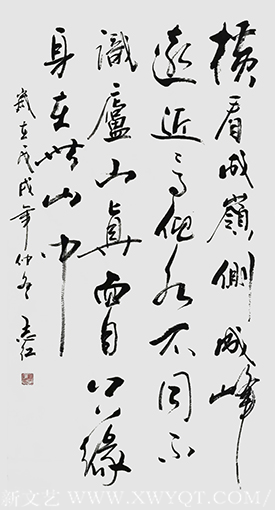 横看成嶺側成峰
遠近高低各不同不
識廬山真面目只緣
身在此山中
歲在戊戌年仲冬
新文艺 WWW.XWYQT.COM/